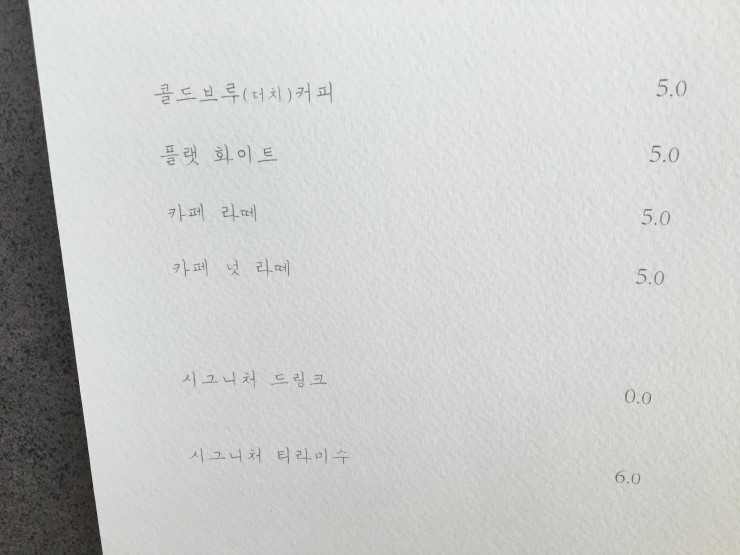 콜드브루(더치)커피 5.0
플랫 화이트 5.0
카페 라떼 5.0
카페 넛 라떼 5.0
시그니처 드링크 0.0
시그니처 티라미수 6.0